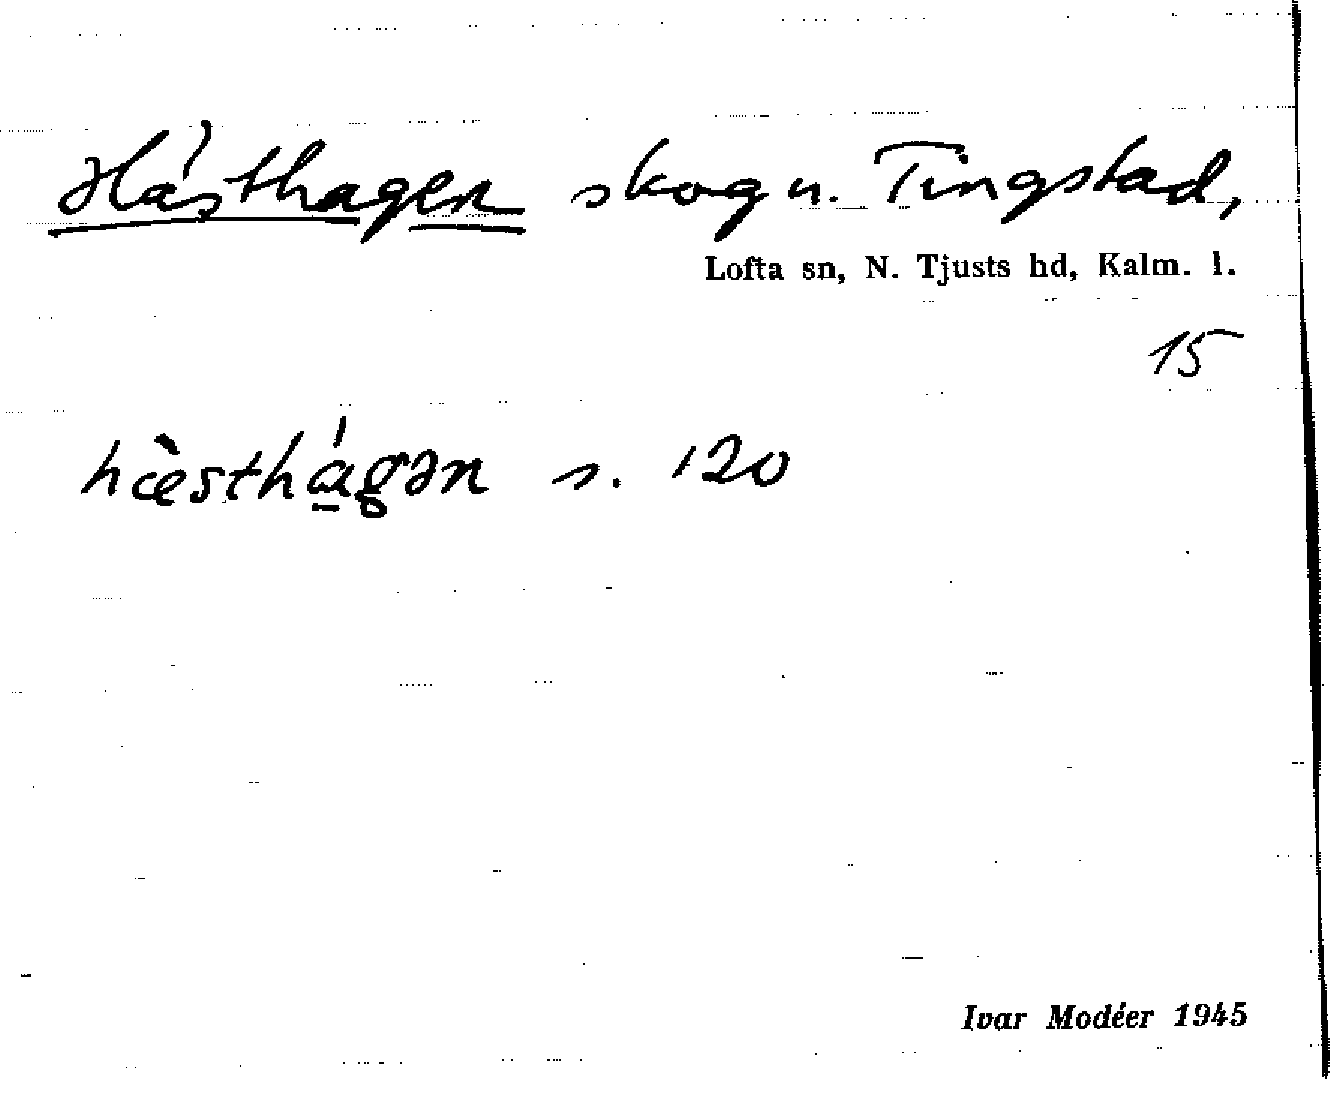 Hästhagen skog u. Tingstad,
Lofta sn, N. Tjusts hd, Kalm. l.
15
hæ̀sthá̱gən s. 120
Ivar Modéer 1945